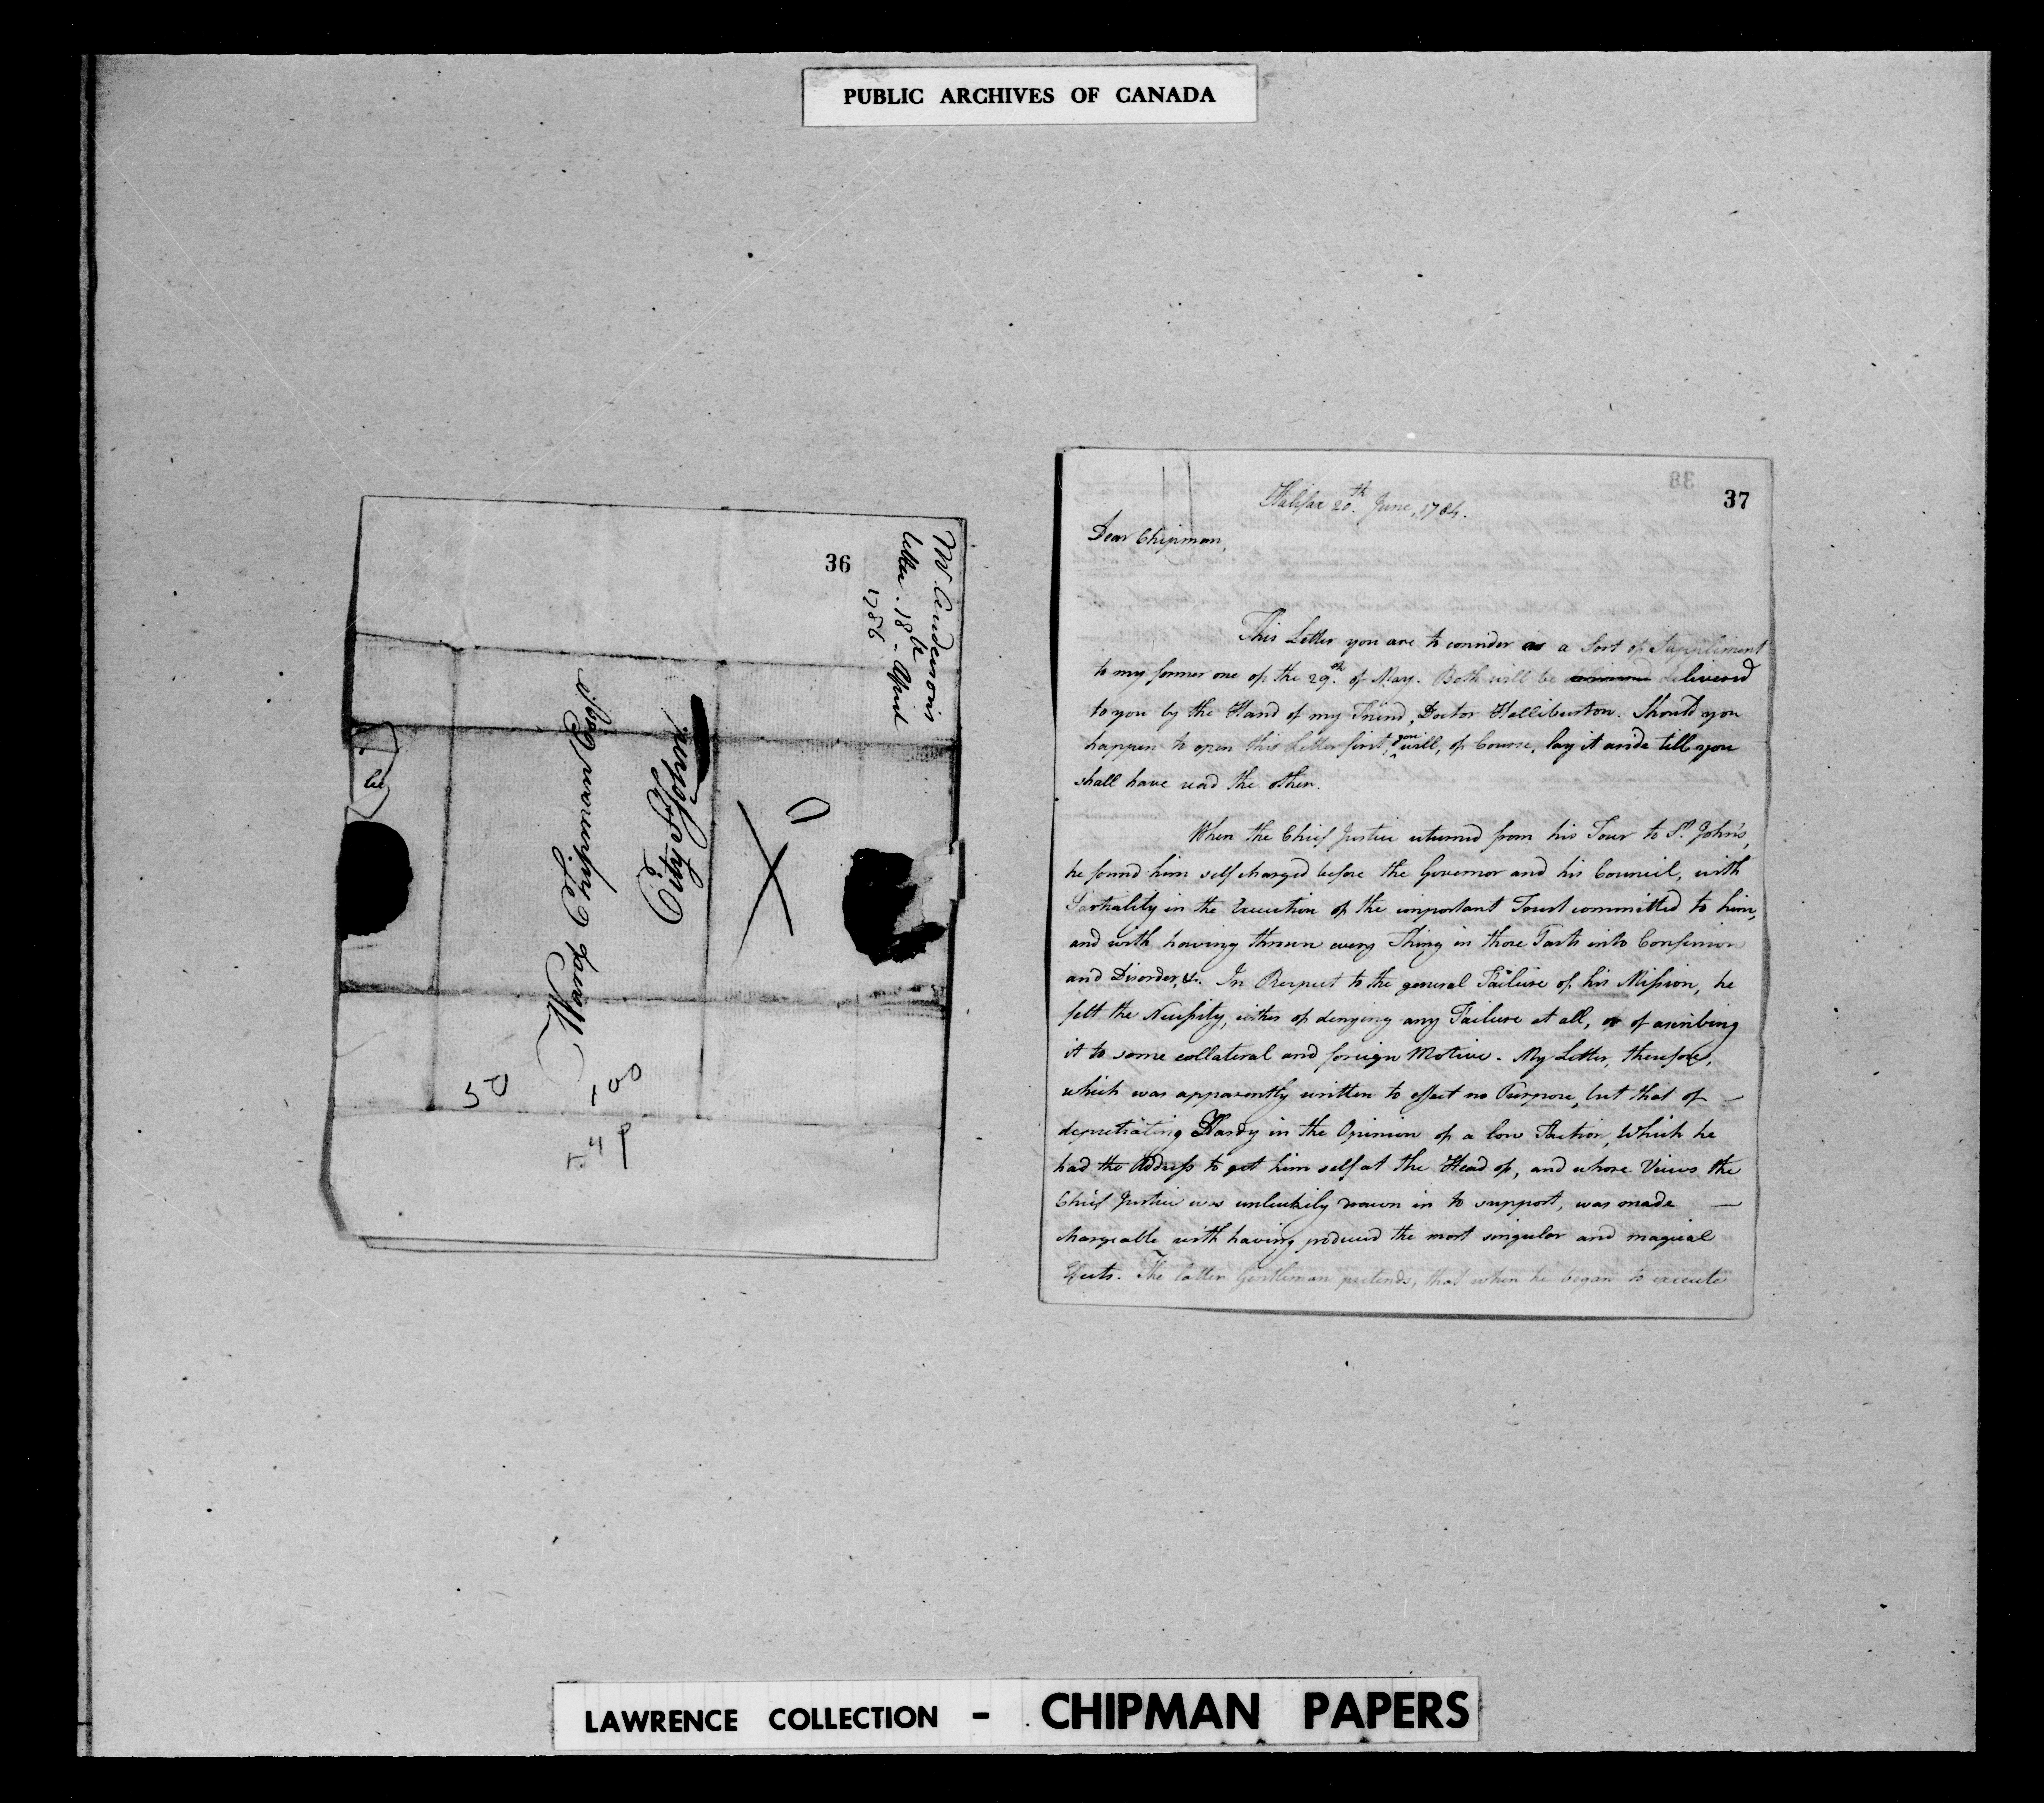 PUBLIC ARCHIVES OF CANADA
36
Mr. Anderson's
letter. 18th. April
1786.
Ward Chipman Esqr.
St. John
City
50
37
Halifax 20th. June, 1784.
Dear Chipman,
This Letter you are to consider as a Sort of Suppliment
to my former one of the 29th. of May. Both will be delivered
to you by the Hand of my Friend, Doctor Halliburton. Should you
happen to open this Letter first, you will, of Course, lay it aside till you
shall have read the other.
When the Chief Justice returned from his Tour to St. John's,
he found him self charged before the Governor and his Council, with
Partiality in the Execution of the important Trust committed to him,
and with having thrown every Thing in those Parts into Confusion
and Disorder, &c. In Respect to the general Failure of his Mission, he
felt the Necessity, either of denying any Failure at all, or of ascribing
it to some collateral and foreign Motive. My Letter, therefore,
which was apparently written to effect no Purpose, but that of —
depretiating Hardy in the Opinion of a low Faction, Which he
had the Address to get him self at the Head of, and whose Views the
Chief Justice was unluckily drawn in to support, was made —
chargeable with having produced the most singular and magical
Effects. The latter Gentleman pretends, that when he began to execute
LAWRENCE COLLECTION - CHIPMAN PAPERS